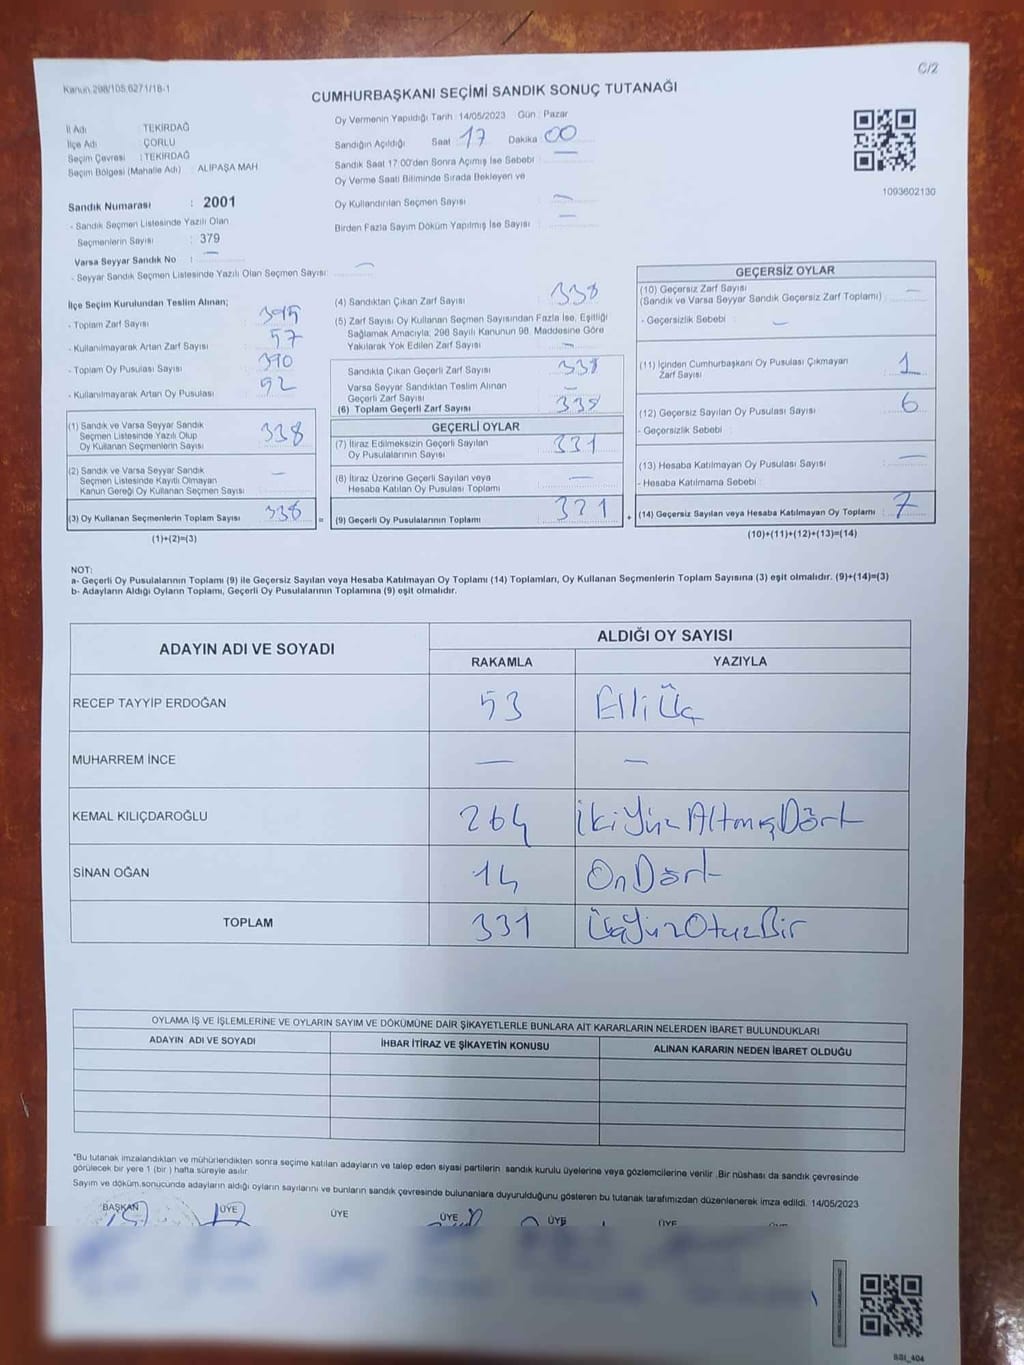 C/2
Kanun 298/105 6271/18-1
CUMHURBAŞKANI SEÇİMİ SANDIK SONUÇ TUTANAĞI
İl Adı TEKİRDAĞ
İlçe Adı ÇORLU
Seçim Çevresi : TEKİRDAĞ
Seçim Bölgesi (Mahalle Adı) : ALİPAŞA MAH
Sandık Numarası : 2001
- Sandık Seçmen Listesinde Yazılı Olan
Seçmenlerin Sayısı : 379
Varsa Seyyar Sandık No : —
- Seyyar Sandık Seçmen Listesinde Yazılı Olan Seçmen Sayısı: —
Oy Vermenin Yapıldığı Tarih : 14/05/2023 Gün : Pazar
Sandığın Açıldığı Saat 17 Dakika 00
Sandık Saat 17:00'den Sonra Açımış İse Sebebi : —
Oy Verme Saati Bitiminde Sırada Bekleyen ve
Oy Kullandırılan Seçmen Sayısı : —
Birden Fazla Sayım Döküm Yapılmış İse Sayısı : —
1093602130
İlçe Seçim Kurulundan Teslim Alınan;
- Toplam Zarf Sayısı : 395
- Kullanılmayarak Artan Zarf Sayısı : 57
- Toplam Oy Pusulası Sayısı : 390
- Kullanılmayarak Artan Oy Pusulası : 52
(1) Sandık ve Varsa Seyyar Sandık
Seçmen Listesinde Yazılı Olup
Oy Kullanan Seçmenlerin Sayısı 338
(2) Sandık ve Varsa Seyyar Sandık
Seçmen Listesinde Kayıtlı Olmayan
Kanun Gereği Oy Kullanan Seçmen Sayısı —
(3) Oy Kullanan Seçmenlerin Toplam Sayısı 338 =
(1)+(2)=(3)
(4) Sandıktan Çıkan Zarf Sayısı 338
(5) Zarf Sayısı Oy Kullanan Seçmen Sayısından Fazla İse, Eşitliği
Sağlamak Amacıyla, 298 Sayılı Kanunun 98. Maddesine Göre
Yakılarak Yok Edilen Zarf Sayısı —
Sandıkla Çıkan Geçerli Zarf Sayısı 338
Varsa Seyyar Sandıktan Teslim Alınan
Geçerli Zarf Sayısı —
(6) Toplam Geçerli Zarf Sayısı 338
GEÇERLİ OYLAR
(7) İtiraz Edilmeksizin Geçerli Sayılan
Oy Pusulalarının Sayısı 331
(8) İtiraz Üzerine Geçerli Sayılan veya
Hesaba Katılan Oy Pusulası Toplamı —
(9) Geçerli Oy Pusulalarının Toplamı 331 +
GEÇERSİZ OYLAR
(10) Geçersiz Zarf Sayısı
(Sandık ve Varsa Seyyar Sandık Geçersiz Zarf Toplamı) —
- Geçersizlik Sebebi : —
(11) İçinden Cumhurbaşkanı Oy Pusulası Çıkmayan
Zarf Sayısı 1
(12) Geçersiz Sayılan Oy Pusulası Sayısı 6
- Geçersizlik Sebebi :
(13) Hesaba Katılmayan Oy Pusulası Sayısı —
- Hesaba Katılmama Sebebi :
(14) Geçersiz Sayılan veya Hesaba Katılmayan Oy Toplamı : 7
(10)+(11)+(12)+(13)=(14)
NOT:
a- Geçerli Oy Pusulalarının Toplamı (9) ile Geçersiz Sayılan veya Hesaba Katılmayan Oy Toplamı (14) Toplamları, Oy Kullanan Seçmenlerin Toplam Sayısına (3) eşit olmalıdır. (9)+(14)=(3)
b- Adayların Aldığı Oyların Toplamı, Geçerli Oy Pusulalarının Toplamına (9) eşit olmalıdır.
ADAYIN ADI VE SOYADI ALDIĞI OY SAYISI
RAKAMLA YAZIYLA
RECEP TAYYİP ERDOĞAN 53 Elli Üç
MUHARREM İNCE — —
KEMAL KILIÇDAROĞLU 264 İkiYüzAltmışDört
SİNAN OĞAN 14 OnDört
TOPLAM 331 ÜçYüzOtuzBir
OYLAMA İŞ VE İŞLEMLERİNE VE OYLARIN SAYIM VE DÖKÜMÜNE DAİR ŞİKAYETLERLE BUNLARA AİT KARARLARIN NELERDEN İBARET BULUNDUKLARI
ADAYIN ADI VE SOYADI İHBAR İTİRAZ VE ŞİKAYETİN KONUSU ALINAN KARARIN NEDEN İBARET OLDUĞU
*Bu tutanak imzalandıktan ve mühürlendikten sonra seçime katılan adayların ve talep eden siyasi partilerin sandık kurulu üyelerine veya gözlemcilerine verilir .Bir nüshası da sandık çevresinde
görülecek bir yere 1 (bir ) hafta süreyle asılır.
Sayım ve döküm.sonucunda adayların aldığı oyların sayılarını ve bunların sandık çevresinde bulunanlara duyurulduğunu gösteren bu tutanak tarafımızdan düzenlenerek imza edildi. 14/05/2023
BAŞKAN ÜYE ÜYE ÜYE ÜYE ÜYE